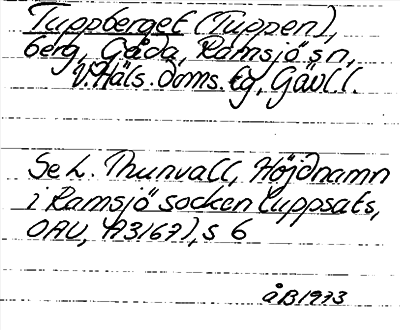 Tuppberget (Tuppen),
berg, Gåda, Ramsjö sn,
V. Häls. doms. fg, Gävll.
Se L. Thunvall, Höjdnamn
i Ramsjö socken (uppsats,
OAU, A3167), s 6
åB 1973